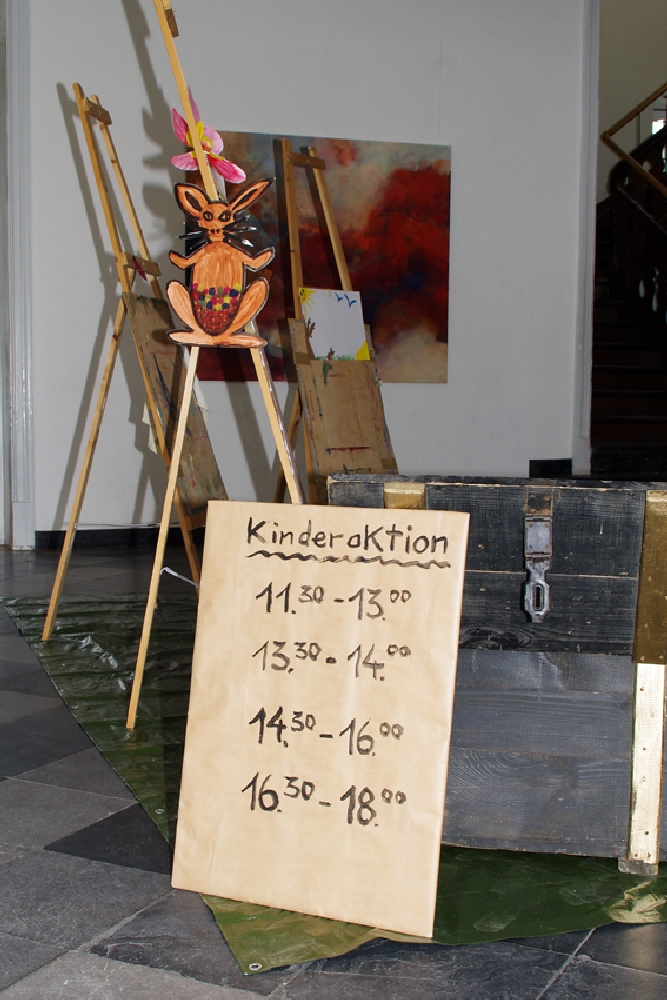 Kinderaktion
11.30 - 13.00
13.30 - 14.00
14.30 - 16.00
16.30 - 18.00